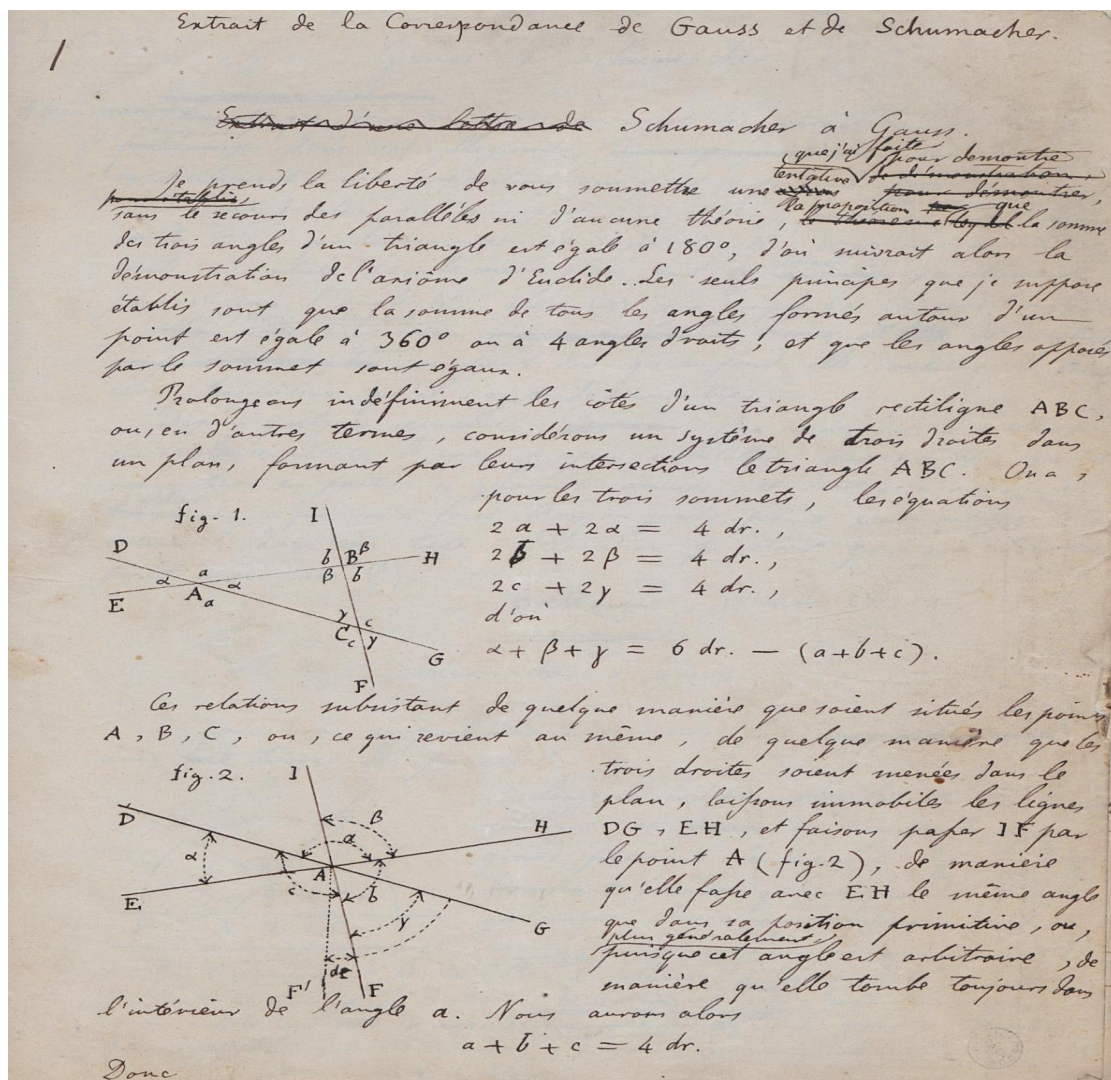 Extrait de la Correspondance de Gauss et de Schumacher.
1
Extrait d'une lettre de Schumacher à Gauss.
que j'ai faite pour demontre
tentative de démonstration,
Je prends la liberté de vous soumettre une pour démontrer,
la proposition que
sans le recours des parallèles ni d'aucune théorie, le théorème la somme
des trois angles d'un triangle est égale à 180°, d'où suivrait alors la
démonstration de l'axiôme d'Euclide. Les seuls principes que je suppose
établis sont que la somme de tous les angles formés autour d'un
point est égale à 360° ou à 4 angles droits, et que les angles opposés
par le sommet sont égaux.
Prolongeons indéfiniment les côtés d'un triangle rectiligne ABC,
ou, en d'autres termes, considérons un système de trois droites dans
un plan, formant par leurs intersections le triangle ABC. On a,
pour les trois sommets, les équations
fig. 1.
I
D
α
a
b
B
β
H
β
b
E
A
a
α
γ
c
C
c
γ
G
F
2a + 2α = 4 dr.,
2b + 2β = 4 dr.,
2c + 2γ = 4 dr.,
d'où
α + β + γ = 6 dr. — (a+b+c).
Ces relations subsistant de quelque manière que soient situés les points
A, B, C, ou, ce qui revient au même, de quelque manière que les
fig. 2.
I
D
β
a
H
α
A
E
c
b
γ
G
dε
F'
F
trois droites soient menées dans le
plan, laissons immobiles les lignes
DG, EH, et faisons passer IF par
le point A (fig. 2), de manière
qu'elle fasse avec EH le même angle
que dans sa position primitive, ou,
plus généralement,
puisque cet angle est arbitraire, de
manière qu'elle tombe toujours dans
l'intérieur de l'angle a. Nous aurons alors
a + b + c = 4 dr.
Donc